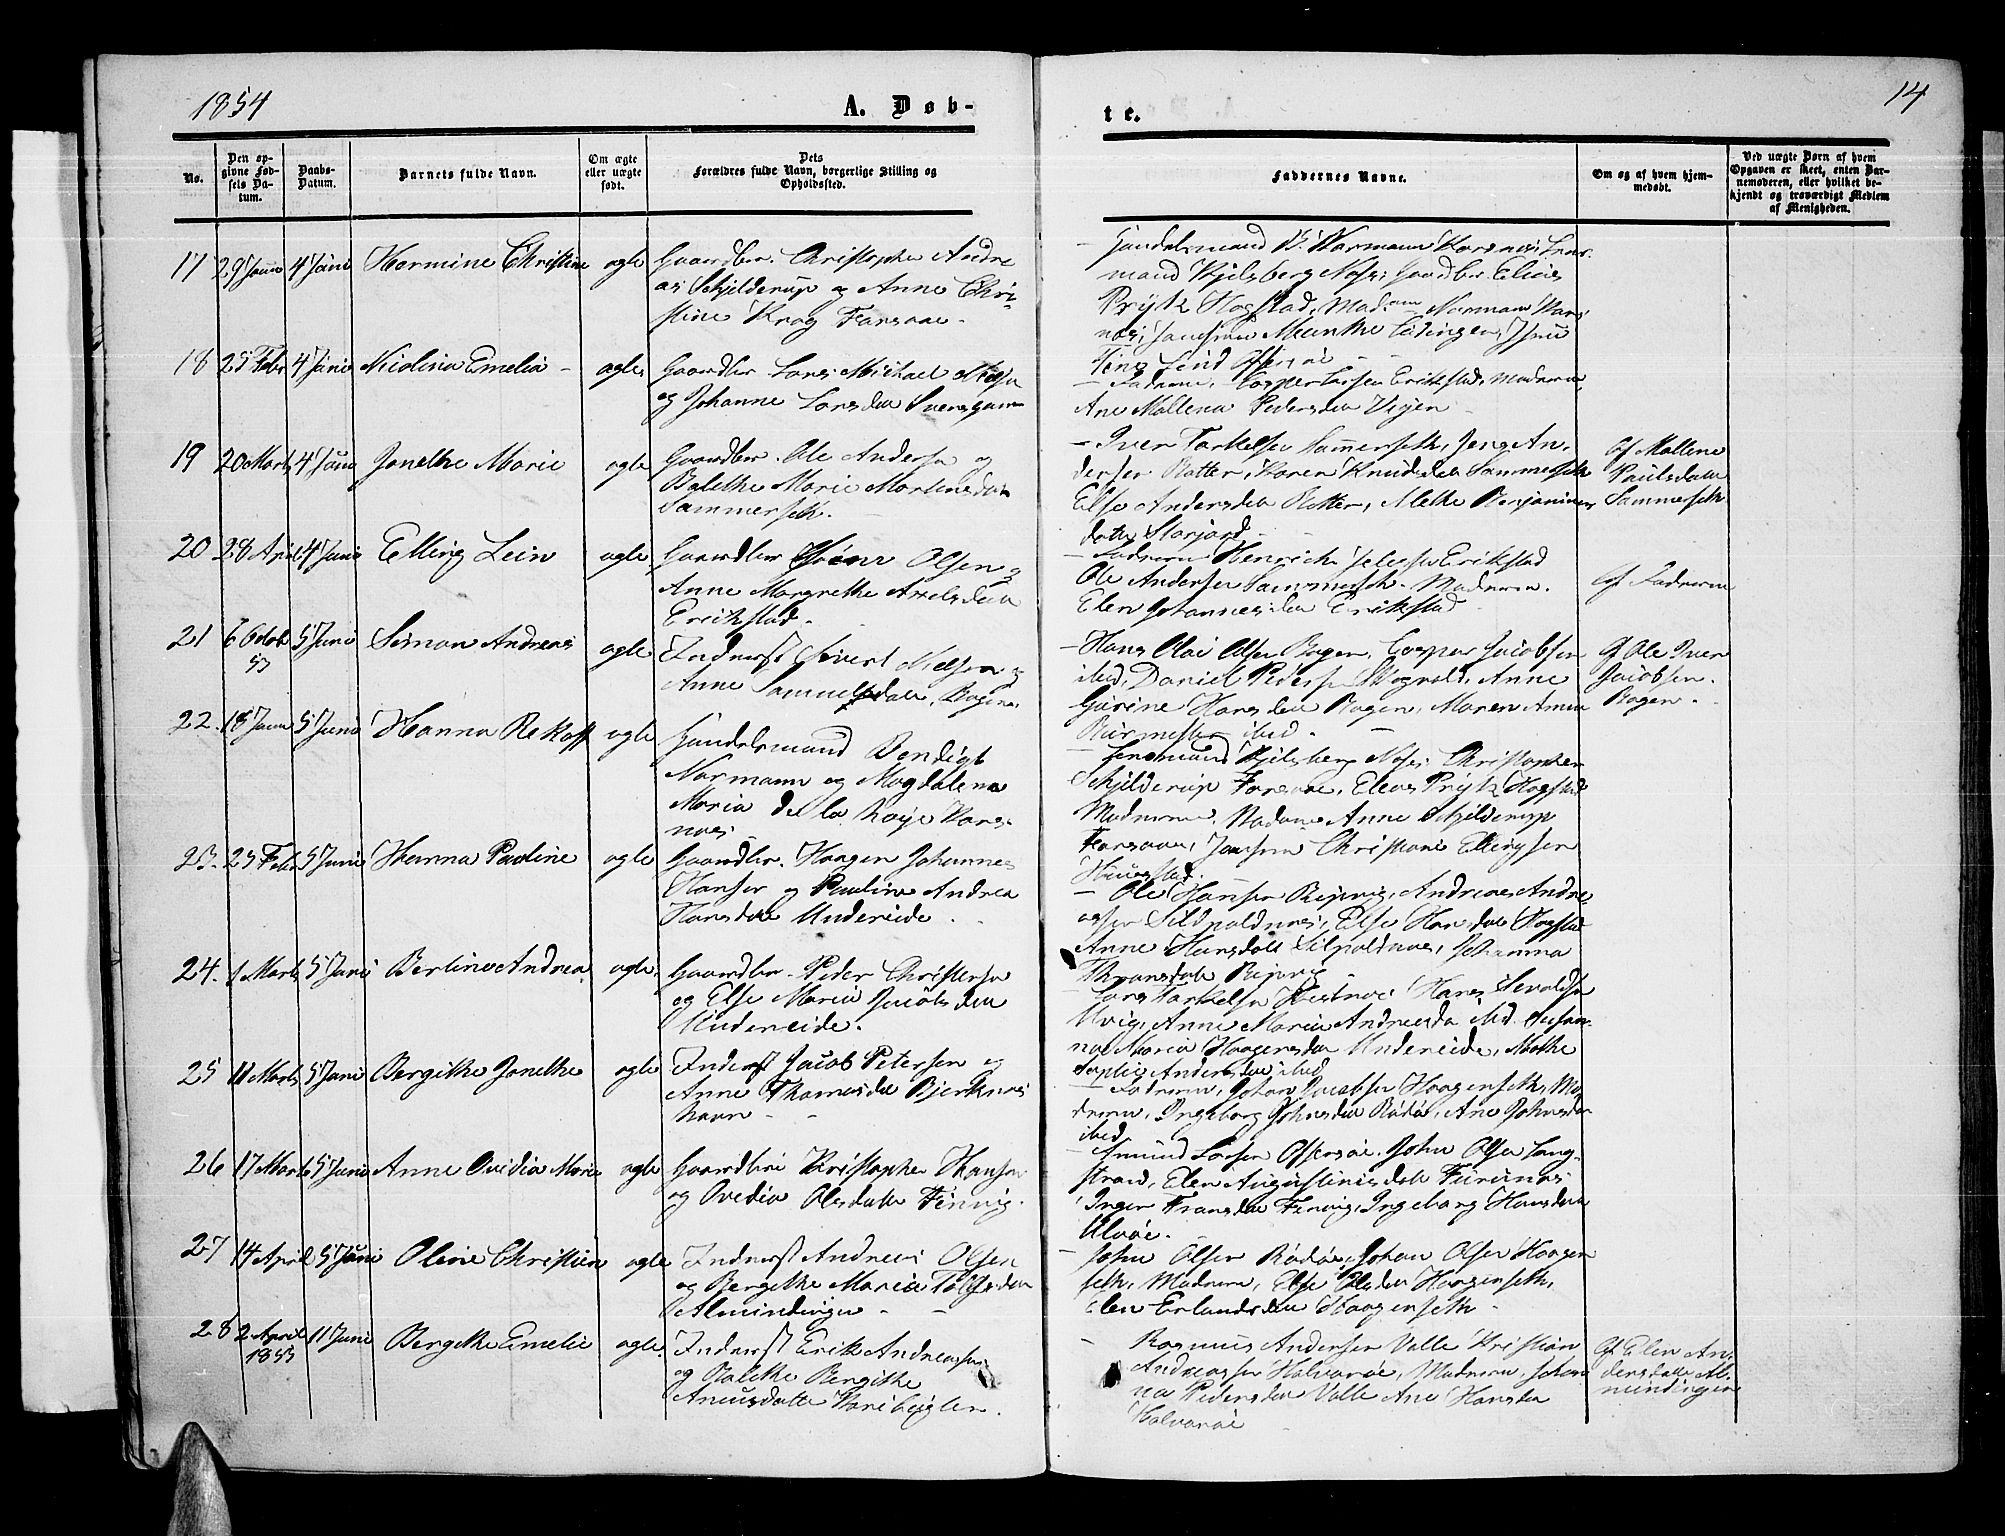 1854
A. Døb-
te.
14
No.
Den op-
givne Fød-
sels Da-
tum.
Daabs-
Datum.
Barnets fulde Navn.
Om ægte
eller uægte
født.
Dets
Forældres fulde Navn, borgerlige Stilling og
Opholdssted.
Faddernes Navne.
Om og af hvem hjem-
medøbt.
Ved uægte Børn af hvem
Opgaven er skeet, enten Bar-
nemoderen, eller hvilket be-
kjendt og troværdigt Medlem
af Menigheden.
17 29 Janu 4 Juni Hermine Christine ægte
Gaardbr. Christopher Andre
as Schjelderup og Anne Chri-
stine Krog Farsaae.
Handelsmand B. Normann Korsnæs, Lens-
mand Kjelsberg Næs, Gaardbr. Elias
Prytz Hogstad, Madam Normann Kors
næs, Jomfru Munthe Lødingen, Jfru
Lind Offersøe
18 25 Febr 4 Juni Nicolina Emelia ægte
Gaardbr Lars Michael
og Johanne Larsdtr
Fadrene, Casper Larsen Erikstad, Modrene
Ane Mallena Pedersdtr
19 20 Marts 4 Juni Jonethe Marie ægte
Gaardbr. Ole Andersn og
Balethe Marie Mortensdatr
Sammerseth.
Iver Tarkelsen Sammerseth, Jens An-
dersen Rotter, Karen Knudsdtr Sammerseth
Else Andersdtr Rotter, Alethe Benjamins
datter Storjord
Af Mallene
Paulsdatr
Sammerseth
20 28 April 4 Juni Elling Lein ægte
Gaardbr Olsen og
Anne Margrethe Axelsdatr
Erikstad.
Fadrene Henrich Erikstad
Ole Andersen Sammerseth. Modrene
Elen Johannesdtr Erikstad
Af Fadrene
21 6 Octob 53 5 Juni Simon Andreas ægte
Inderst Sivert Nielsen og
Anne Samuelsdatr, Bogen.
Hans Olai Olsen Bogen, Casper Jacobsen
ibid, Daniel Pedersen Skogvold, Anne
Gurine Hansdtr Bogen, Maren Anna
Burmester ibid
Af Ole Iver
Jacobsen
Bogen.
22. 18 Janu 5 Juni Hanna Rekoff ægte
Handelsmand Bendigt
Normann og Magdalena
Maria de la Noye Kors-
næs
Lensmand Kjelsberg Næs, Christopher
Schjelderup Farsaae, Elias Prytz Hogstad
Modrene, Madam Anne Schjelderup
Farsaae, Jomfru Christiane Ellingsen
23. 23 Febr 5 Juni Hanna Pauline ægte
Gaardbr. Haagen Johannes
Hansen og Pauline Andrea
Hansdtr Undereide.
Ole Hansen Ripvig, Andreas Andre-
assen Sildpoldnæs, Else Hansdtr Hogstad
Anne Hansdatr Silpoldnæs, Johanna
Ripvig
24. 1 Marts 5 Juni Berline Andrea ægte
Gaardbr. Peder Christensn
og Else Maria Jacobsdtr
Undereide.
Lars Tarkelsn Hestnæs Hans Sevaldsn
Anne Maria Andreasdtr ibid Susan-
na Maria Haagensdtr Undereide, Mathe
Sophie Andersdtr ibid
25 11 Marts 5 Juni Bergithe Jonethe ægte
Inderst Jacob Petersen og
Anne Thomasdtr Bjerknæs
havn
Fadrene, Johan Jacobsen Haagenseth, Mo-
drene, Ingeborg Johnsdtr Rødøe, Ane Johnsdtr
ibid
26 17 Marts 5 Juni Anne Ovidia Marie ægte
Gaardbr Kristopher Hansen
og Ovedia Olsdatr Finvig.
Amund Larsen Offersøe. John Olsen Lang-
strand, Elen Augustinisdtr Furunæs
Inger Fransdtr Finvig, Ingeborg Hansdtr
Ulvøe.
27 14 April 5 Juni Oline Christine ægte
Inderst Andreas Olsen
og Bergithe Maria Tollefsdtr
Almindingen
John Olsen Rødøe, Johan Olsen Haagen
seth, Modrene, Else Olsdtr Haagenseth,
Elen Erlandsdtr Haagenseth
28 2 April 1853 11 Juni Bergithe Emelie ægte.
Inderst Erik Andreassen
og Balethe Bergithe
Rasmus Andersen Valle Kristian
Andreassen Halvarøe, Modrene, Johan
na Pedersdtr Valle Ane Hansdtr
Halvarøe
Af Elen An-
dersdatter Al-
mindingen